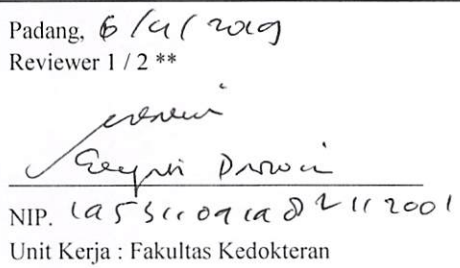 Padang, 6/4/2019
Reviewer 1 / 2 **
Darwin
NIP. 195311091982112001
Unit Kerja : Fakultas Kedokteran